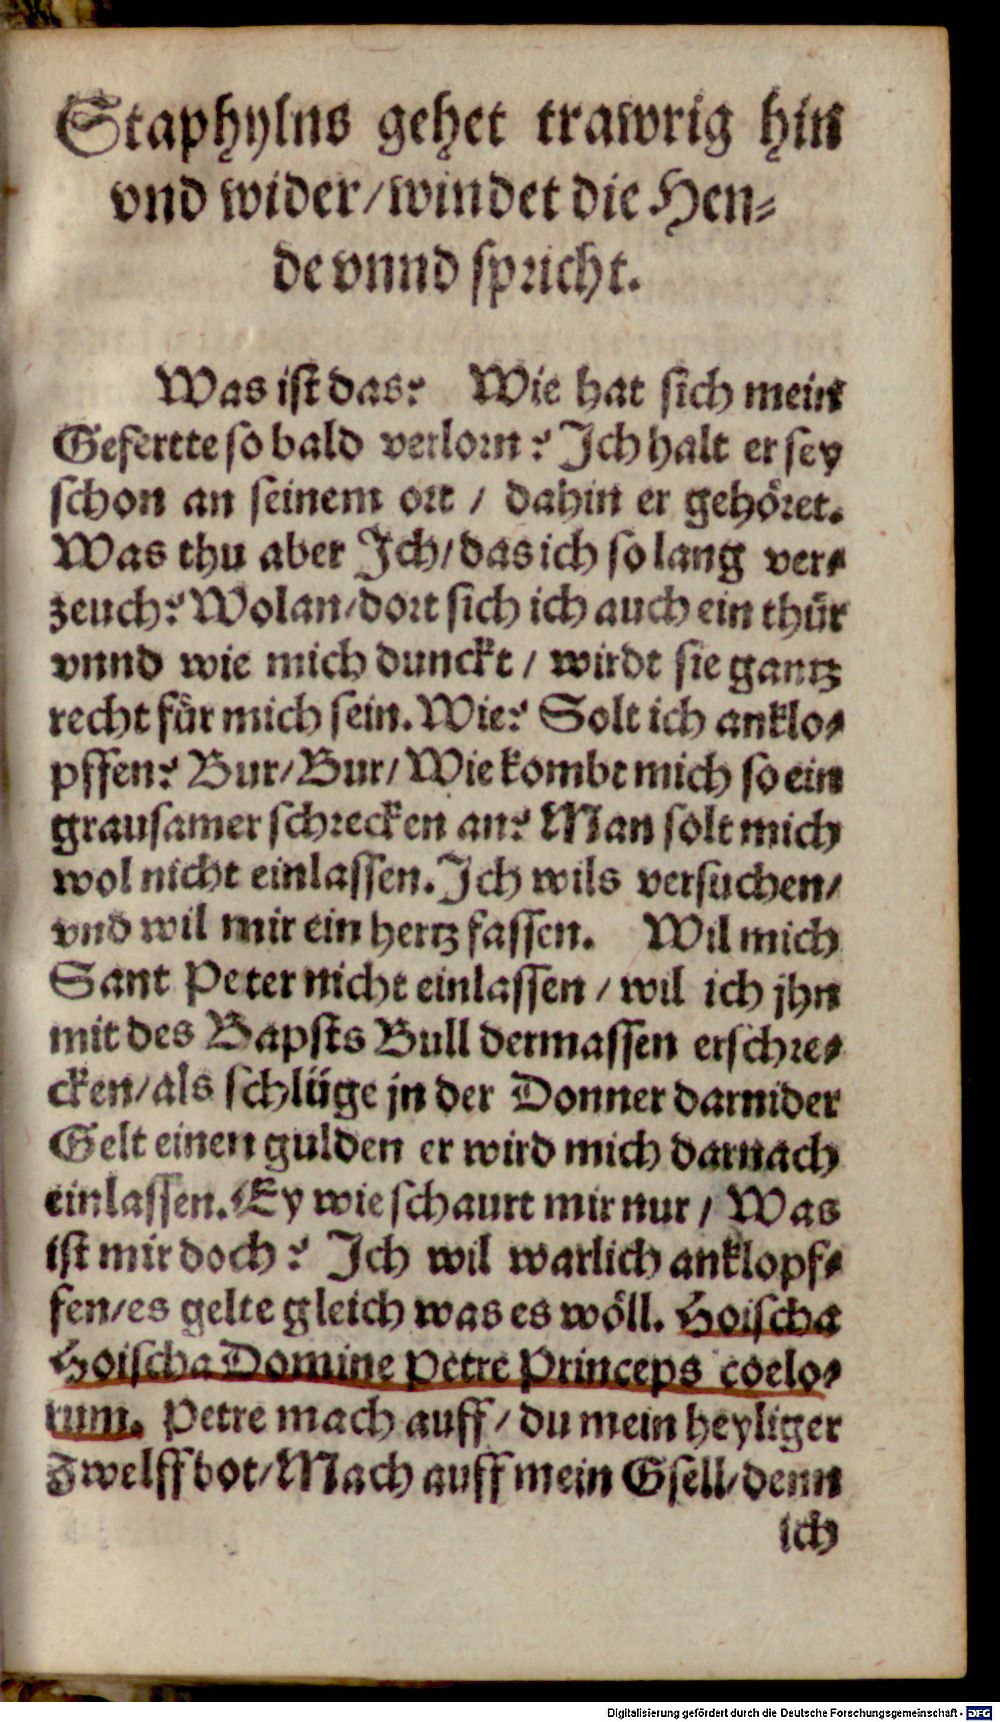 Staphylns gehet trawrig hin
vnd wider/windet die Hen⸗
de vnnd spricht.
Was ist das? Wie hat sich mein
Gefertte so bald verlorn? Ich halt er sey
schon an seinem ort / dahin er gehöret.
Was thu aber Ich/das ich so lang ver⸗
zeuch? Wolan/dort sich ich auch ein thür
vnnd wie mich dunckt / wirdt sie gantz
recht für mich sein. Wie? Solt ich anklo⸗
pffen? Bur/Bur/Wie kombt mich so ein
grausamer schrecken an? Man solt mich
wol nicht einlassen. Ich wils versuchen/
vnd wil mir ein hertz fassen. Wil mich
Sant Peter nicht einlassen / wil ich jhn
mit des Bapsts Bull dermassen erschre⸗
cken/als schlüge jn der Donner darnider
Gelt einen gulden er wird mich darnach
einlassen. Ey wie schaurt mir nur / Was
ist mir doch? Ich wil warlich anklopf⸗
fen/es gelte gleich was es wöll. Hoischa
Hoischa Domine Petre Princeps coelo⸗
rum. Petre mach auff / du mein heyliger
Zwelffbot/Mach auff mein Gsell/denn
ich
Digitalisierung gefördert durch die Deutsche Forschungsgemeinschaft - DFG